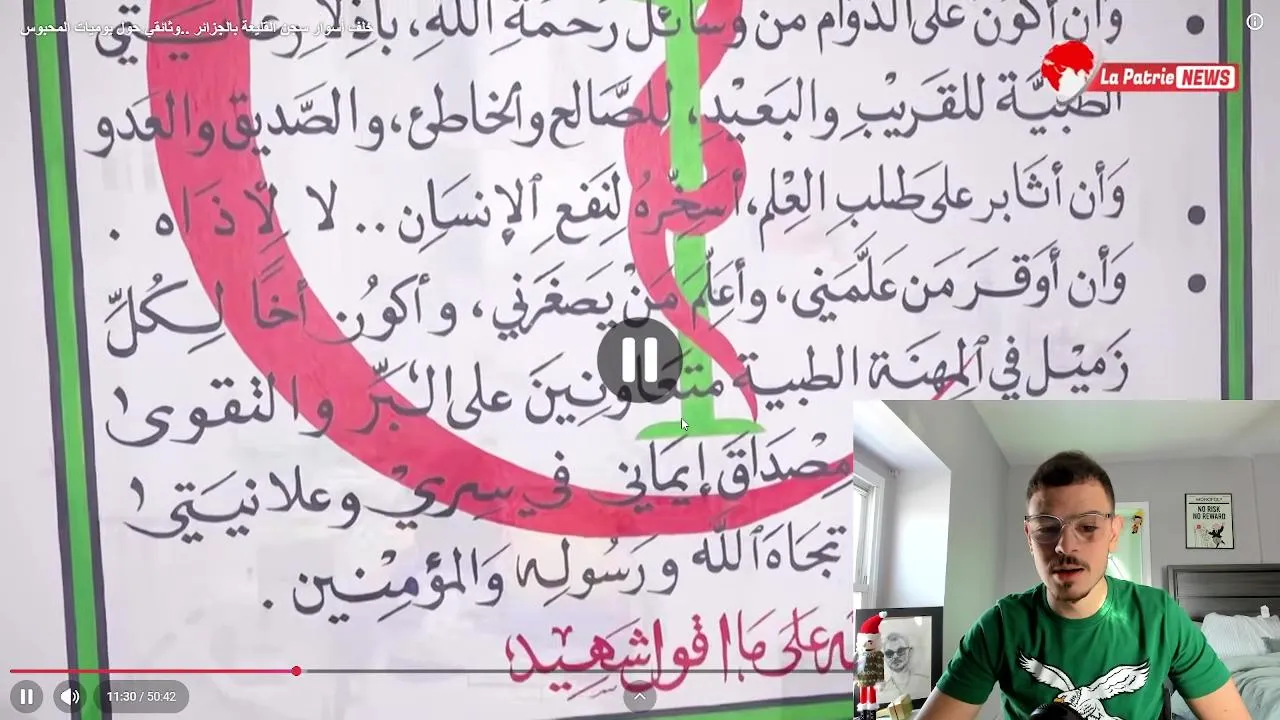 خلف أسوار سجن القليعة بالجزائر ..وثائقي حول يوميات المحبوس
وَأن أكون على الدّوام من وسَائل رَحمَة اللّه، بَاذلاً رعَايَتي
La Patrie NEWS
الطبّيَّة للقَريْبِ والبَعيْدِ، للصَّالح والخاطئ، والصَّديق والعَدو
وَأن أثَابر على طَلبِ العِلْم، أسَخّرهُ لنَفعِ الإنسَانِ .. لا لِأذَاه .
وَأن أوَقرَ مَن عَلَّمَني، وأعَلّمَ مَنْ يَصغَرَني، وأكوُن أخًا لكُلّ
زَميْل في المِهنَة الطبية متعَاونِينَ على البَرّ والتقوى،
MONOPOLY
NO RISK
NO REWARD
مِصْدَاقَ إيمَاني في سِريْ وعلانيَتي،
تجَاهَ اللّه ورَسُوله وَالمؤمِنْين .
على مَا اقول شَهِيد،
11:30 / 50:42